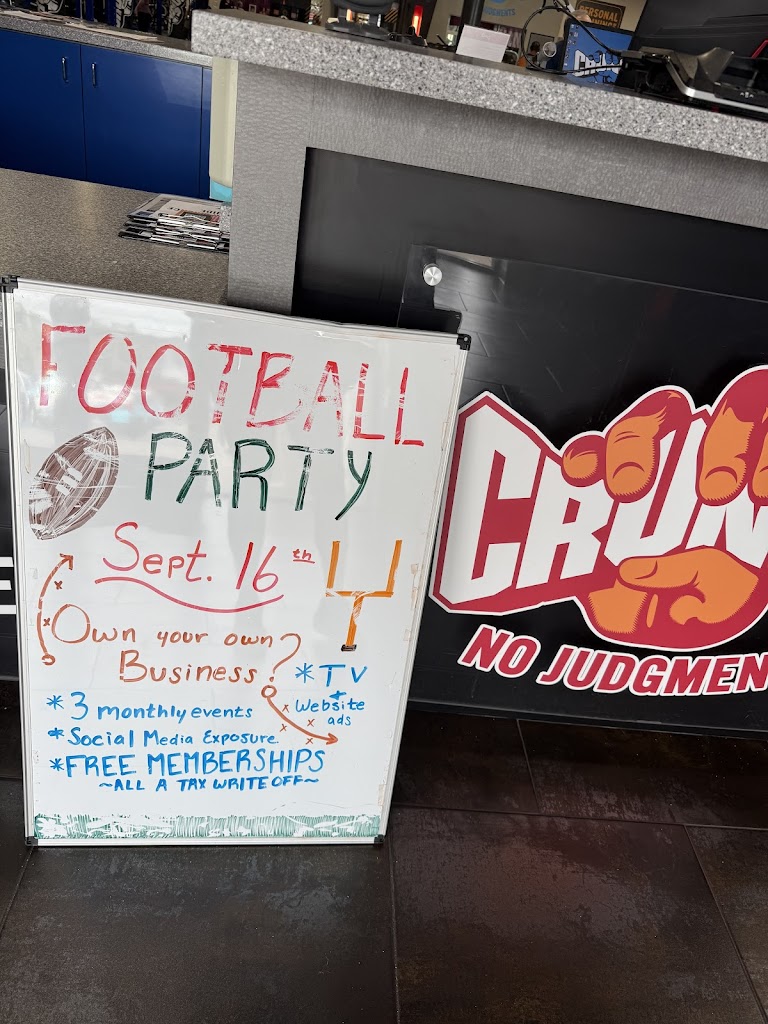 PERSONAL
FOOTBALL
PARTY
Sept. 16th
Own your own
Business?
* TV
+
* 3 monthly events
Website
ads
* Social Media Exposure
* FREE MEMBERSHIPS
~ALL A TAX WRITE OFF~
CRUN
NO JUDGMEN